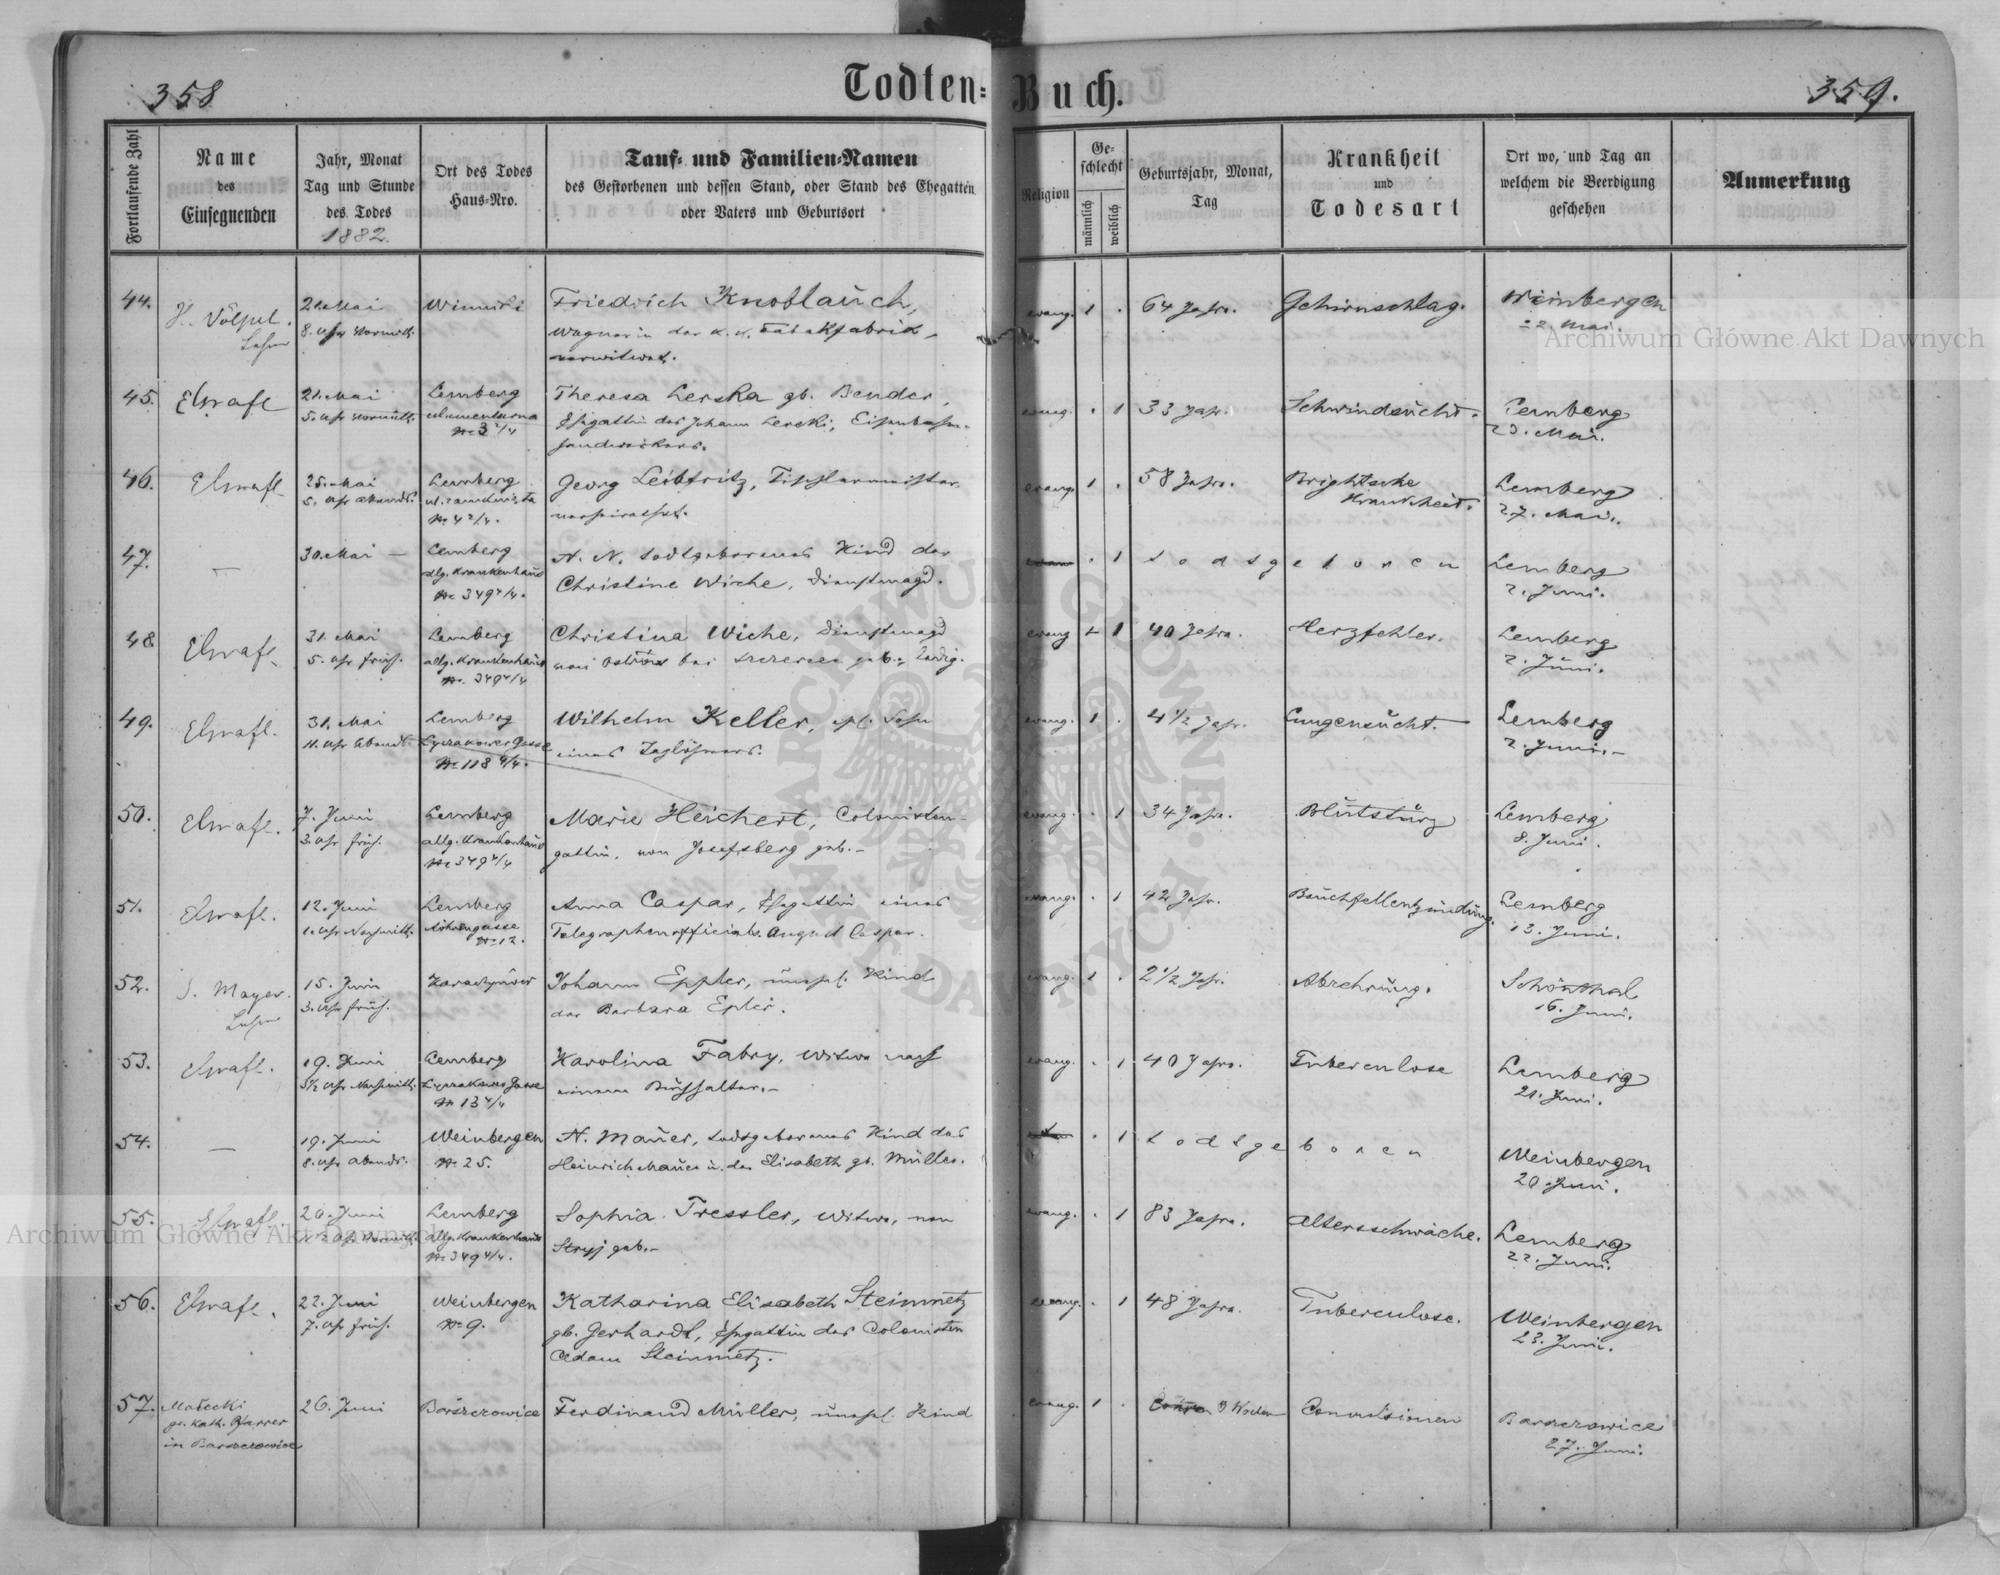 358
Todten-Buch.
359.
Fortlaufende Zahl
Name
des
Einsegnenden
Jahr, Monat
Tag und Stunde
des Todes
1882.
Ort des Todes
Haus-Nro.
Tauf- und Familien-Namen
des Gestorbenen und dessen Stand, oder Stand des Ehegatten
oder Vaters und Geburtsort
Religion
Ge-
schlecht
männlich
weiblich
Geburtsjahr, Monat,
Tag
Krankheit
und
Todesart
Ort wo, und Tag an
welchem die Beerdigung
geschehen
Anmerkung
44.
H. Völpel.
21. Mai
8. Uhr Vormitt.
Winniki
Friedrich Knoblauch,
Wagner in der k. k. Tabakfabrik,
verwitwet.
evang. 1 .
64 Jahre.
Gehirnschlag.
Weinbergen
22. Mai.
45.
21. Mai
5. Uhr Vormitt.
Lemberg
No 3 2/4
Theresa Lerska gb. Bender,
Ehegattin des Johann Lercki, Eisenbahn-
evang. . 1
33 Jahre.
Schwindsucht.
Lemberg
23. Mai.
46.
25. Mai
5. Uhr Abends.
Lemberg
No 4 2/4.
Georg Leibfritz, Tischlermeister
verheirathet.
evang. 1 .
58 Jahre.
Brightsche
Krankheit.
Lemberg
27. Mai.
47.
—
30. Mai —
Lemberg
allg. Krankenhaus
No 349 4/4.
N. N. todtgeborenes Kind der
Christine Wiche, Dienstmagd.
. 1
todtgeboren
Lemberg
2. Juni.
48
31. Mai
5. Uhr früh.
Lemberg
allg. Krankenhaus
No. 349 4/4
Christina Wiche, Dienstmagd
von bei geb., ledig.
evang 1
40 Jahre.
Herzfehler.
Lemberg
2. Juni.
49.
31. Mai
11. Uhr Abends.
Lemberg
Lyczakower Gasse
No 118 4/4.
Wilhelm Keller, ehl. Sohn
eines Taglöhners.
evang. 1 .
4 1/2 Jahr.
Lungensucht.
Lemberg
2. Juni.
50.
7. Juni
3. Uhr früh.
Lemberg
allg. Krankenhaus
No 349 4/4
Marie Heichert, Colonisten-
gattin, von Josefsberg geb.
evang. . 1
34 Jahre.
Blutsturz
Lemberg
8. Juni.
51.
12. Juni
1. Uhr Nachmitt.
Lemberg
No 12.
Anna Caspar, Ehegattin eines
Telegraphenofficials August Caspar.
evang. . 1
42 Jahr.
Bauchfellentzündung.
Lemberg
13. Juni.
52.
J. Mayer.
15. Juni
3. Uhr früh.
Johann Eppler, unehl. Kind
der Barbara Epler.
evang. 1 .
2 1/2 Jahr.
Abzehrung.
Schönthal
16. Juni.
53.
19. Juni
Lemberg
Lyczakower Gasse
No 13 4/4
Karolina Fabry, Witwe nach
einem Buchhalter.
evang. . 1
40 Jahre.
Tuberculose
Lemberg
21. Juni.
54.
—
19. Juni
8. Uhr Abends.
Weinbergen
No 25.
N. Mauer, todtgeborenes Kind des
Heinrich Mauer u. der Elisabeth gb. Müller.
. 1
todtgeboren
Weinbergen
20. Juni.
55.
20. Juni
Lemberg
allg. Krankenhaus
No 349 4/4.
Sophia Tressler, Witwe, von
Stryj geb.
evang. . 1
83 Jahre.
Altersschwäche.
Lemberg
22. Juni.
56.
22. Juni
7. Uhr früh.
Weinbergen
No 9.
Katharina Elisabeth Steinmetz
gb. Gerhardt, Ehegattin des Colonisten
Adam Steinmetz.
evang. . 1
48 Jahre.
Tuberculose.
Weinbergen
23. Juni.
57.
Malecki
gr. kath. Pfarrer
in Barszczowice
26. Juni
Barszczowice
Ferdinand Müller, unehl. Kind
evang. 1 .
Wochen
Convulsionen
Barszczowice
27. Juni.
Archiwum Główne Akt Dawnych
Archiwum Główne Akt Dawnych
ARCHIWUM GŁÓWNE AKT DAWNYCH